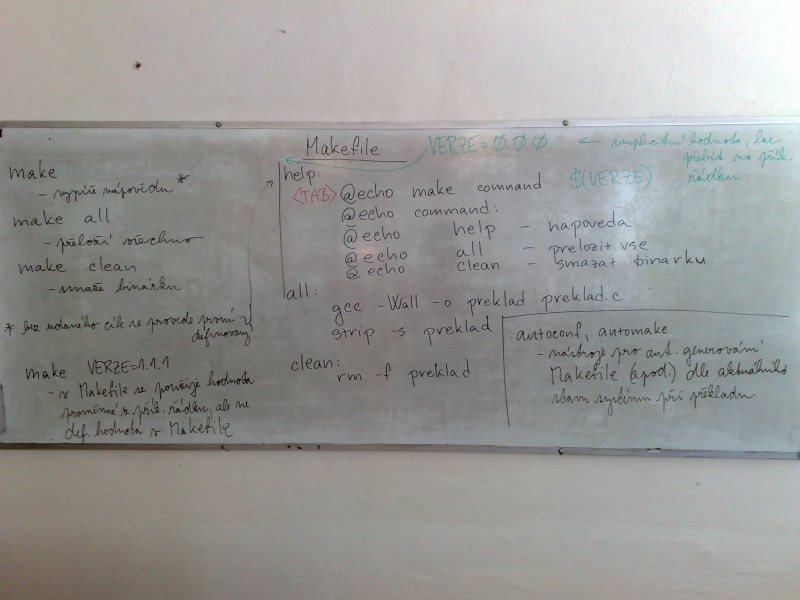 make
- vypíše nápovědu *
make all
- přeloží všechno
make clean
- smaže binárku
* bez udaného cíle se provede první
definovaný
make VERZE=1.1.1
- v Makefile se použije hodnota
proměnné z přík. řádku, ale ne
def. hodnota v Makefile
Makefile
VERZE=0.0.0 ← implicitní hodnota, lze
přebít na přík.
řádku
$(VERZE)
help:
<TAB> @echo make command
@echo command:
@echo help - napoveda
@echo all - prelozit vse
@echo clean - smazat binarku
all:
gcc -Wall -o preklad preklad.c
strip -s preklad
clean:
rm -f preklad
autoconf, automake
- nástroje pro aut. generování
Makefile (apod.) dle aktuálního
stavu systému při překladu